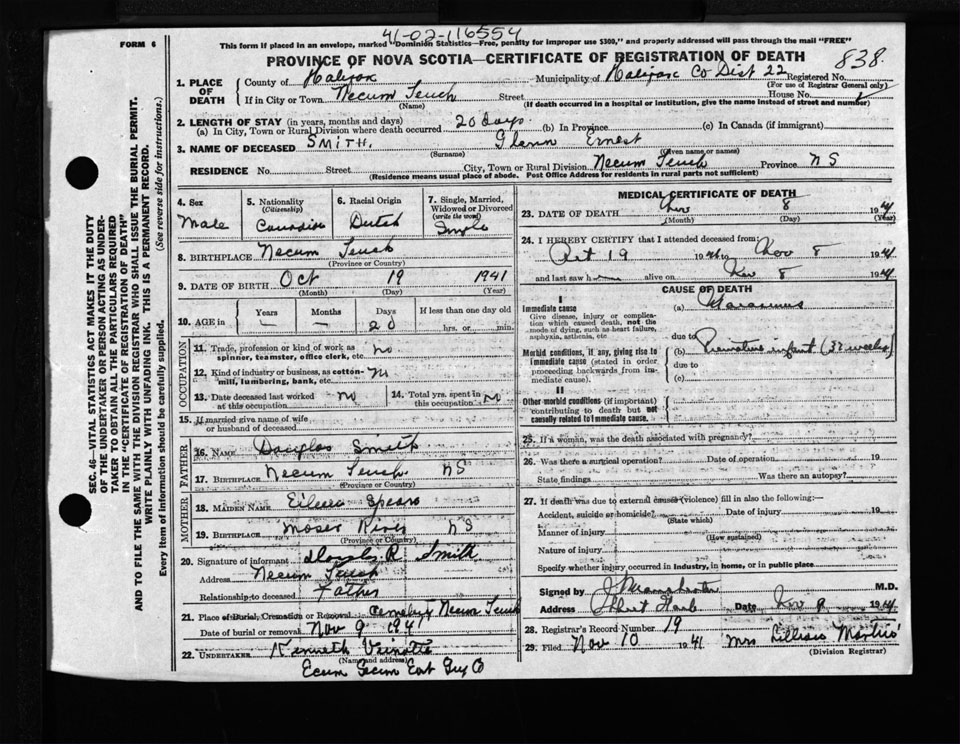 41-02-116554
FORM 6
This form if placed in an envelope, marked "Dominion Statistics—Free, penalty for improper use $300," and properly addressed will pass through the mail "FREE"
PROVINCE OF NOVA SCOTIA—CERTIFICATE OF REGISTRATION OF DEATH
838
1. PLACE OF DEATH
County of Halifax Municipality of Halifax Co Dist 22 Registered No.
(For use of Registrar General only)
If in City or Town Necum Teuch Street House No.
(Name) (If death occurred in a hospital or institution, give the name instead of street and number)
2. LENGTH OF STAY (in years, months and days)
(a) In City, Town or Rural Division where death occurred 20 days. (b) In Province (c) In Canada (if immigrant)
3. NAME OF DECEASED SMITH. Glenn Ernest
(Surname) (Given name or names)
RESIDENCE No. Street City, Town or Rural Division Necum Teuch Province NS
(Residence means usual place of abode. Post Office Address for residents in rural parts not sufficient)
4. Sex
Male
5. Nationality
(Citizenship)
Canadian
6. Racial Origin
Dutch
7. Single, Married, Widowed or Divorced
(write the word)
Single
8. BIRTHPLACE Necum Teuch
(Province or Country)
9. DATE OF BIRTH Oct 19 1941
(Month) (Day) (Year)
10. AGE in Years Months Days If less than one day old
— — 20 hrs. or min.
OCCUPATION
11. Trade, profession or kind of work as spinner, teamster, office clerk, etc. no
12. Kind of industry or business, as cotton-mill, lumbering, bank, etc. no
13. Date deceased last worked at this occupation no
14. Total yrs. spent in this occupation no
15. If married give name of wife or husband of deceased
FATHER
16. NAME Douglas Smith
17. BIRTHPLACE Necum Teuch NS
MOTHER
18. MAIDEN NAME Spears
19. BIRTHPLACE Moser River NS
(Province or Country)
20. Signature of informant Douglas R. Smith
Address Necum Teuch
Relationship to deceased Father
21. Place of Burial, Cremation or Removal Cemetery Necum Teuch
Date of burial or removal Nov 9 1941
22. UNDERTAKER Kenneth
(Name and address)
Ecum Secum East Guy Co
MEDICAL CERTIFICATE OF DEATH
23. DATE OF DEATH Nov 8 1941
(Month) (Day) (Year)
24. I HEREBY CERTIFY that I attended deceased from:
Oct 19 1941 to Nov 8 1941
and last saw h alive on Nov 8 1941
CAUSE OF DEATH
I
Immediate cause
Give disease, injury or complication which caused death, not the mode of dying, such as heart failure, asphyxia, asthenia, etc
(a) Marasmus
due to
Morbid conditions, if any, giving rise to immediate cause (stated in order proceeding backwards from immediate cause).
(b) Premature infant (32 weeks)
due to
(c)
II
Other morbid conditions (if important) contributing to death but not causally related to immediate cause.
25. If a woman, was the death associated with pregnancy?
26. Was there a surgical operation? Date of operation 19
State findings Was there an autopsy?
27. If death was due to external causes (violence) fill in also the following:—
Accident, suicide or homicide? Date of injury 19
(State which)
Manner of injury
(How sustained)
Nature of injury
Specify whether injury occurred in industry, in home, or in public place
Signed by M.D.
Address Sheet Harb Date Nov 9 1941
28. Registrar's Record Number 19
29. Filed Nov 10 1941 Mrs Lillian
(Division Registrar)
SEC. 46—VITAL STATISTICS ACT MAKES IT THE DUTY
OF THE UNDERTAKER OR PERSON ACTING AS UNDER-
TAKER TO OBTAIN ALL THE PARTICULARS REQUIRED
IN THE "CERTIFICATE OF REGISTRATION OF DEATH"
AND TO FILE THE SAME WITH THE DIVISION REGISTRAR WHO SHALL ISSUE THE BURIAL PERMIT.
WRITE PLAINLY WITH UNFADING INK. THIS IS A PERMANENT RECORD.
Every item of information should be carefully supplied. (See reverse side for instructions.)